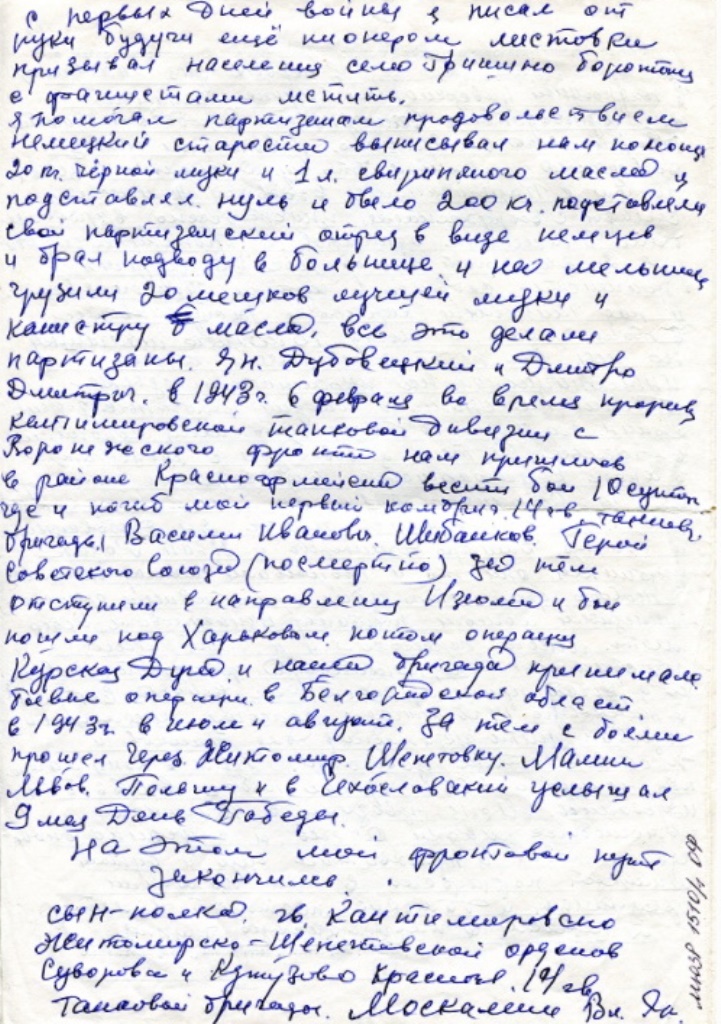 с первых Дней войны я писал от
руки будучи ещё пионером листовки
призывал населения село Гришино боротця
с фашистами мстить.
я помогал партизанам продовольствием
немецкий староста выписывал нам
20 т. чёрной муки и 1 л. масла я
подставлял нуль и было 200 кг. подставляли
свой партизанский отряд в виде немцев
и брал подводу в больнице и на мельнице
грузили 20 мешков лучшей муки и
канистру масла, все это делали
партизаны. Ян. Дубовецкий и Дмитро
Дмитрич. в 1943 г. 6 февраля во время прорыв
кантимировской танковой дивизии с
Воронежского фронта нам пришлось
в районе Красноармейска вести бои 10 суток
где и погиб мой первый комбриг 14 гв. танков.
бригады Василий Иванович. Шибанков. Герой
Советского Союза (посмертно) За тем
отступили в направлении Изюма и бои
пошли под Харьковом потом операция
Курская Дуга и наша бригада принимала
боевые операции. в Белгородской област
в 1943 г. в июле и август. За тем с боями
прошел через Житомир. Шепетовку. Малин
Львов. Польшу и в Чехословакии услышал
9 мая День Победы.
На этом мой фронтовой путь
закончился.
сын-полка. гв. Кантимировско
Житомирско-Шепетовской орденов
Суворова и Кутузова 14 гв.
Танковой бригады. Москалин Вл. Як.
1510/1 ОФ